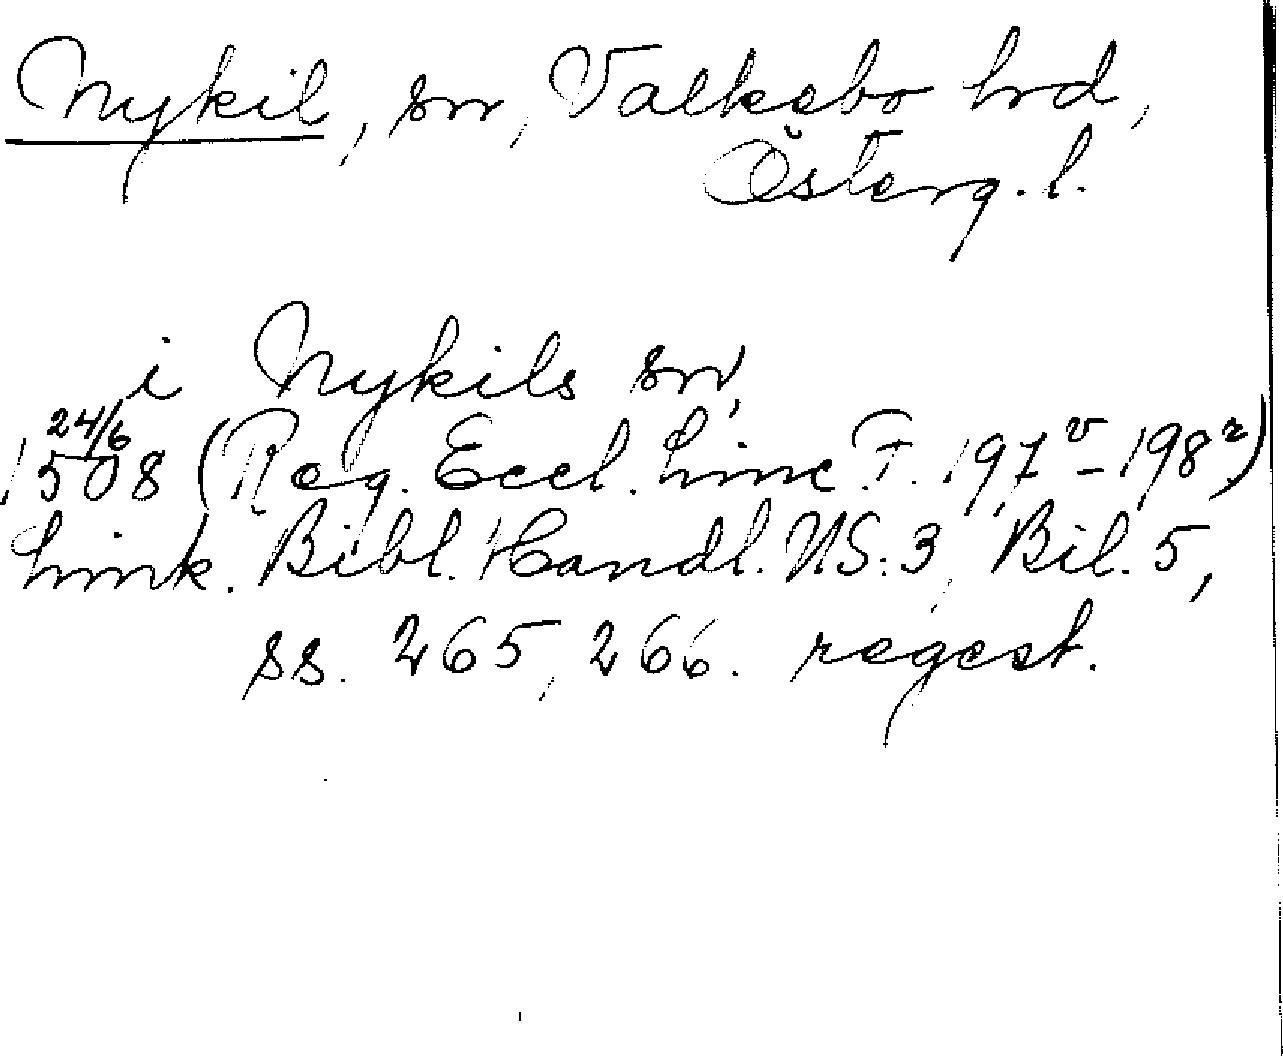 Nykil, sn, Valkebo hrd,
Österg. l.
i Nykils sn,
24/6
1508 (Reg. Eccl. Linc F. 197v - 198r)
Link. Bibl. Handl. NS. 3, Bil. 5,
ss. 265, 266. regest.